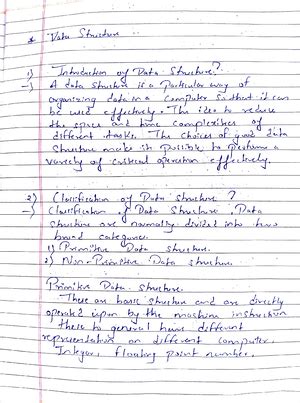 * Data Structure
1) Introduction of Data Structure?
→ A data structure is a Particular way of
organizing data in a Computer so that it can
be used effectively. The idea to reduce
the space and time complexities of
different tasks. The choices of good data
structure make it possible to perform a
variety of critical operation effectively.
2) Classification of Data structure ?
→ Classification of Data Structure. Data
structure are normally divided into two
broad categories.
1) Primitive Data structure.
2) Non-Primitive Data structure
Primitive Data Structure.
There are basic structure and are directly
operated upon by the machine instruction
these to general have different
representation on different computer.
Integer, floating point number,